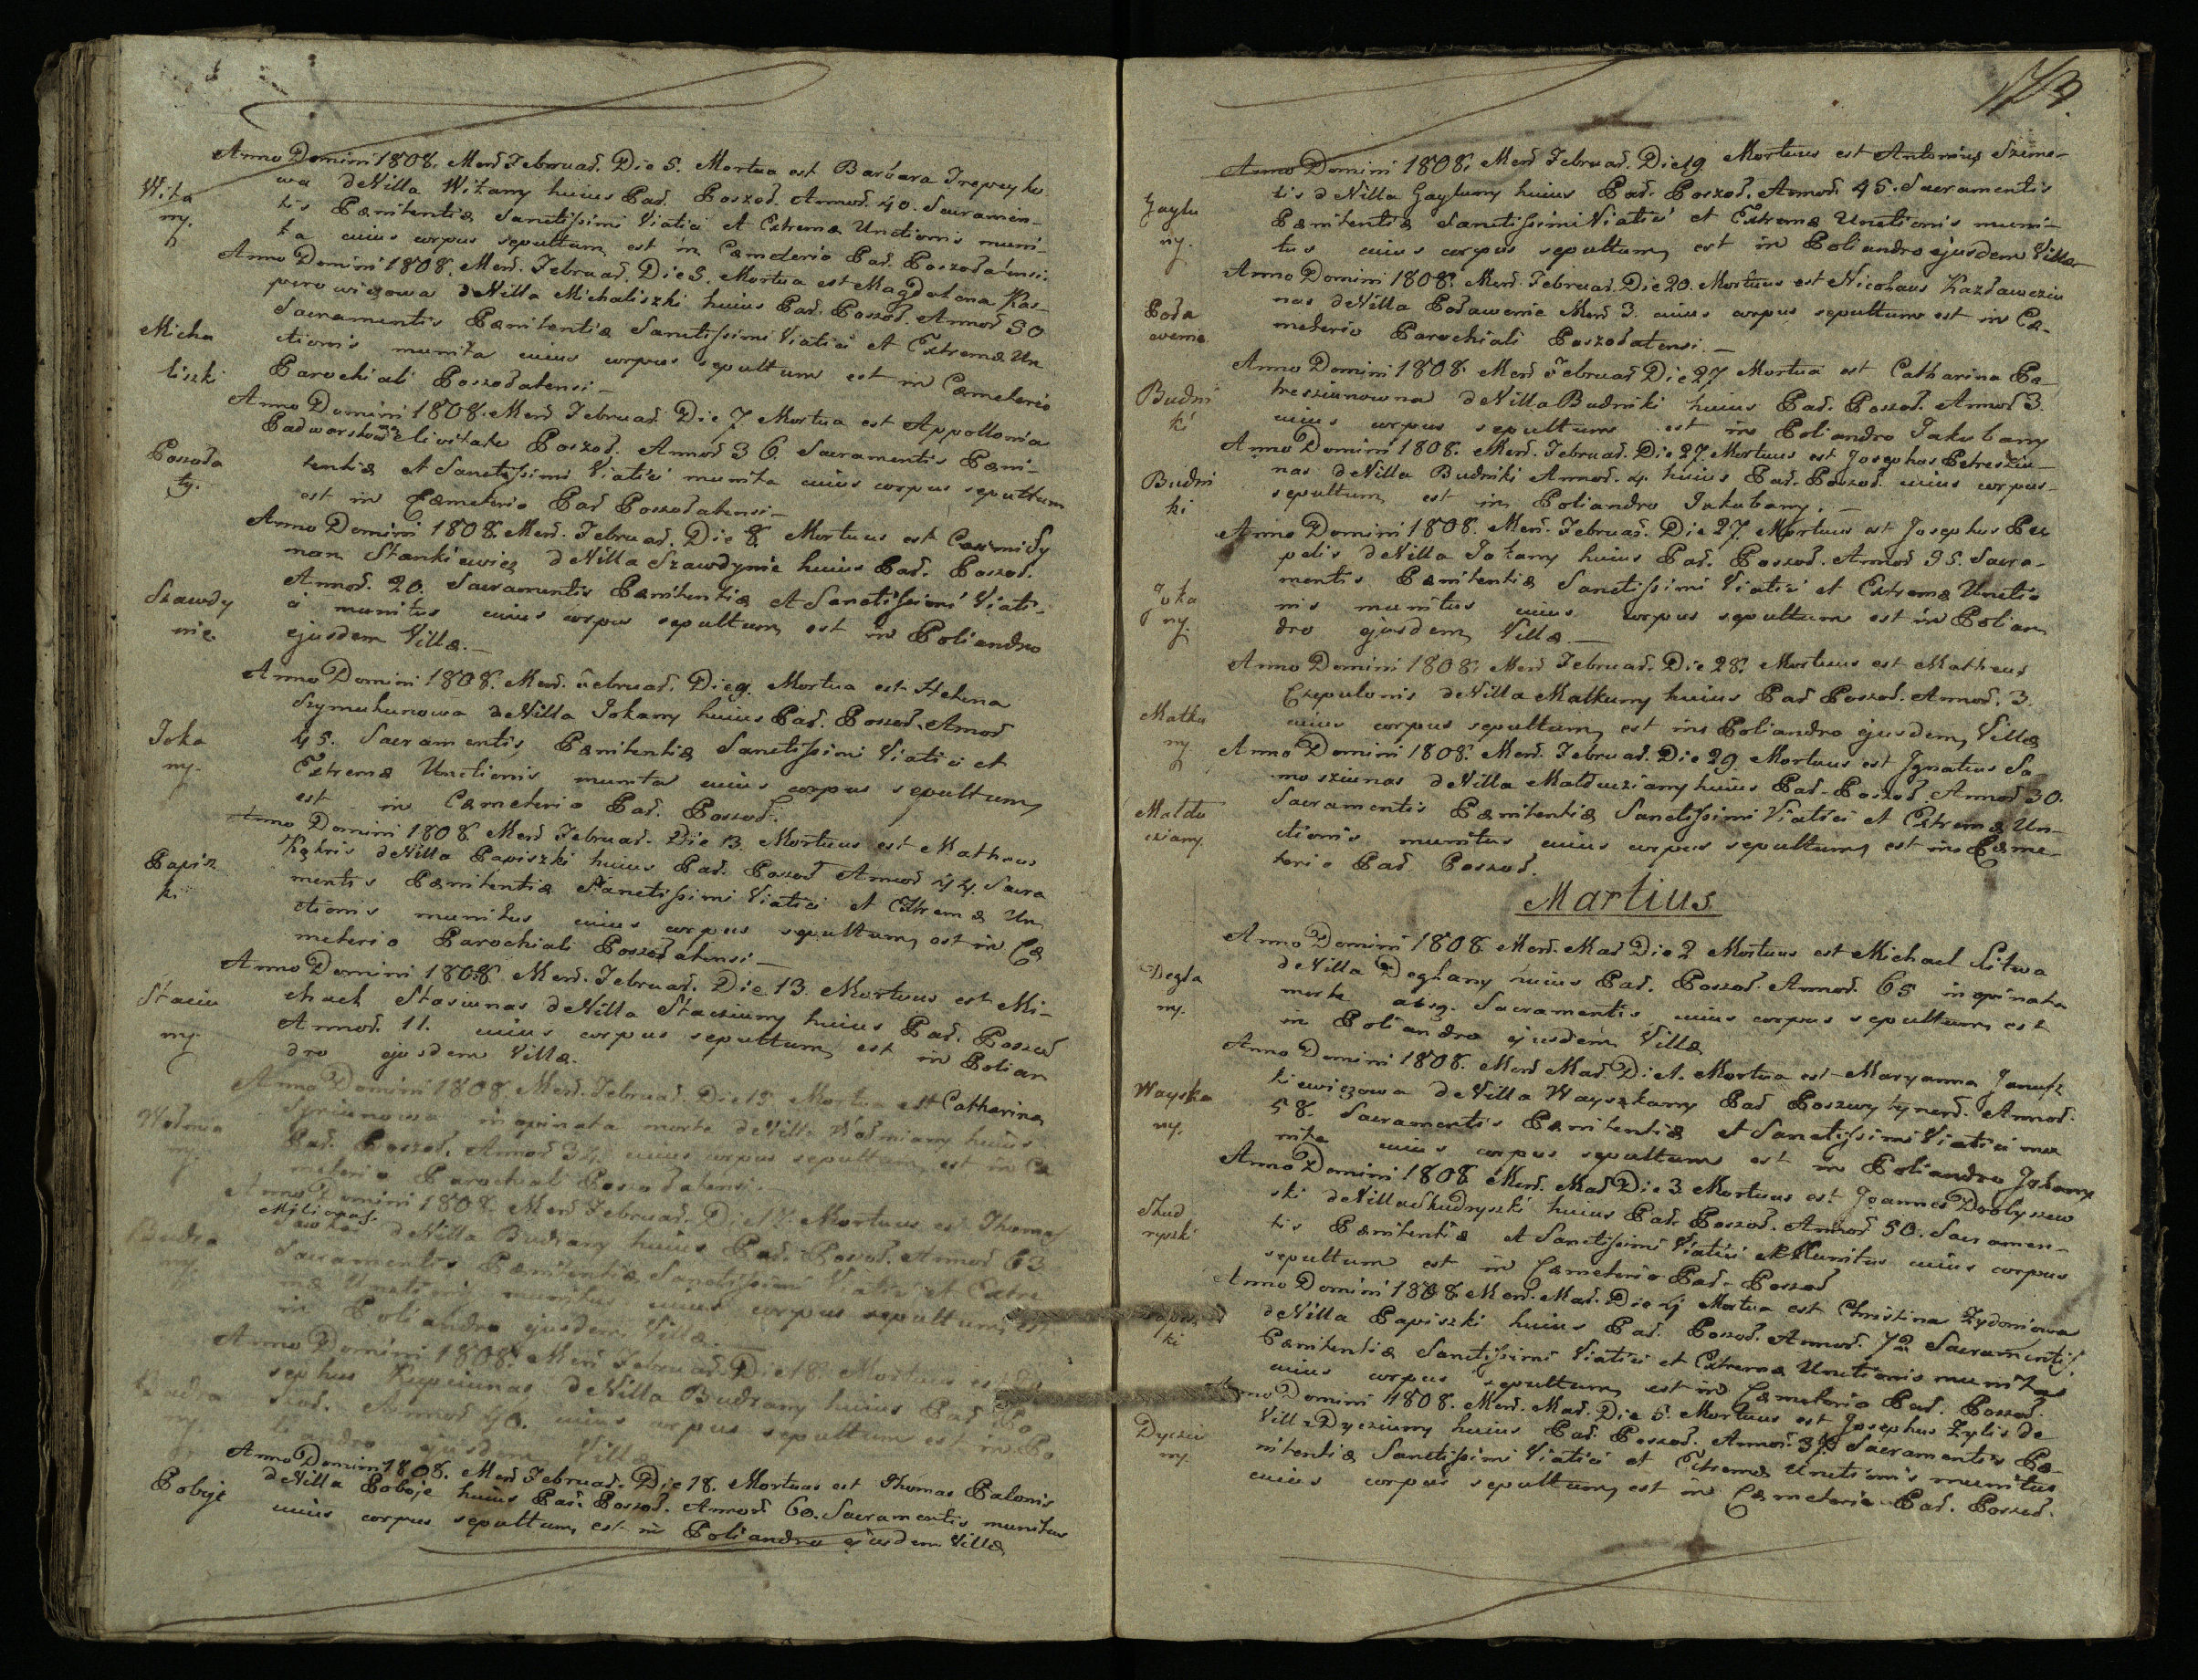 Anno Domini 1808. Mens Februar. Die 5. Mortua est Barbara
wa de Villa Witany huius Par. Poszoł. Annor. 40. Sacramen-
Wita
ny.
tis Pænitentiæ Sanctissimi Viatici et Extremæ Unctionis muni-
ta cuius corpus sepultum est in Cæmeterio Par. Poszołatensi.
Anno Domini 1808. Mens. Februar. Die 5. Mortua est Magdalena Kas-
perowiczowa de Villa Michaliszki huius Par. Poszoł. Annor 50
Micha
liszki
Sacramentis Pænitentiæ Sanctissimi Viatici et Extremæ Un
ctionis munita cuius corpus sepultum est in Cæmeterio
Parochiali Poszołatensi —
Anno Domini 1808. Mens. Februar. Die 7 Mortua est Appollonia
Civitate Poszoł. Annor 36. Sacramentis Pæni-
Poszoła
ty.
tentiæ et Sanctissimi Viatici munita cuius corpus sepultum
est in Cæmeterio Par Poszołatensi —
Anno Domini 1808. Mens. Februar. Die 8. Mortuus est
Stankiewicz de Villa Szawdynie huius Par. Poszoł.
Annor. 20. Sacramentis Pænitentiæ et Sanctissimi Viati-
Szawdy
nie
ci munitus cuius corpus sepultum est in Poliandro
ejusdem Villæ. —
Anno Domini 1808. Mens. Februar. Die 9. Mortua est Helena
Szymukunowa de Villa Jokany huius Par. Poszoł. Annor
Joka
ny.
45. Sacramentis Pænitentiæ Sanctissimi Viatici et
Extremæ Unctionis munita cuius corpus sepultum
est in Cæmeterio Par. Poszoł.
Anno Domini 1808 Mens Februar. Die 13. Mortuus est Matheus
de Villa Papiszki huius Par. Poszoł Annor 44. Sacra
Papisz
ki
mentis Pænitentiæ Sanctissimi Viatici et Extremæ Un
ctionis munitus cuius corpus sepultum est in Cæ
meterio Parochiali Poszołatensi —
Anno Domini 1808. Mens. Februar. Die 13. Mortuus est Mi-
chael Stasiunas de Villa Stacziuny huius Par. Poszoł
Staciu
ny.
Annor. 11. cuius corpus sepultum est in Polian
dro ejusdem Villæ.
Anno Domini 1808. Mens. Februar. Die 15 Mortua est Catharina
inopinata morte de Villa Wołniany huius
Par. Poszoł. Annor cuius corpus sepultum est in Cæ
meterio Parochiali Poszołatensi. —
Anno Domini 1808. Mens Februar. Die Mortuus est Thomas
de Villa Budrany huius Par. Poszoł. Annor 63
Budra
ny.
Sacramentis Pænitentiæ Sanctissimi Viatici et Extre
mæ Unctionis munitus cuius corpus sepultum est
in Poliandro ejusdem Villæ. —
Anno Domini 1808. Mens Februar. Die 18. Mortuus est Jo
sephus de Villa Budrany huius Par Po
Budra
ny
szoł. Annor 46. cuius corpus sepultum est in Po
liandro ejusdem Villæ
Anno Domini 1808. Mens Februar. Die 18. Mortuus est Thomas Balonis
de Villa Poboje huius Par. Poszoł. Annor. 60. Sacramentis munitus
Poboje
cuius corpus sepultum est in Poliandro ejusdem Villæ
Anno Domini 1808. Mens Februar. Die 19 Mortuus est Antonius Szime-
tis de Villa Gayluny huius Par. Poszoł. Annor. 45. Sacramentis
Gaylu
ny.
Pænitentiæ Sanctissimi Viatici et Extremæ Unctionis muni-
tus cuius corpus sepultum est in Poliandro ejusdem Villæ
Anno Domini 1808. Mens. Februar. Die 20. Mortuus est Nicolaus
nas de Villa Podawenie Mens 3. cuius corpus sepultum est in Cæ-
Poda
wenie
meterio Parochiali Poszołatensi. —
Anno Domini 1808. Mens Februar Die 27 Mortua est Catharina Pe-
tresziunowna de Villa Budniki huius Par. Poszoł. Annor 3.
Budni
ki
cuius corpus sepultum est in Poliandro Jakubany
Anno Domini 1808. Mens. Februar. Die 27. Mortuus est Josephus Petresziu-
nas de Villa Budniki Annor. 4. huius Par. Poszoł. cuius corpus
Budni
ki
sepultum est in Poliandro Jakubany. —
Anno Domini 1808. Mens. Februar. Die 27. Mortuus est Josephus
de Villa Jokany huius Par. Poszoł. Annor 35. Sacra-
mentis Pænitentiæ Sanctissimi Viatici et Extremæ Unctio
Joka
ny.
nis munitus cuius corpus sepultum est in Polian
dro ejusdem Villæ. —
Anno Domini 1808. Mens Februar. Die 28. Mortuus est Matheus
Czepulonis de Villa Matkuny huius Par Poszoł. Annor. 3.
Matku
ny
cuius corpus sepultum est in Poliandro ejusdem Villæ
Anno Domini 1808. Mens. Februar. Die 29 Mortuus est Ignatius Sa
mosziunas de Villa Małducziany huius Par. Poszoł Annor 30.
Małdu
cziany
Sacramentis Pænitentiæ Sanctissimi Viatici et Extremæ Un-
ctionis munitus cuius corpus sepultum est in Cæme-
terio Par Poszoł.
Martius
Anno Domini 1808 Mens. Mar Die 2 Mortuus est Michael Litwa
de Villa Deglany huius Par. Poszoł. Annor. 65 inopinata
Degla
ny.
morte absq. Sacramentis cuius corpus sepultum est
in Poliandro ejusdem Villæ
Anno Domini 1808. Mens Mar. Die 1. Mortua est Maryanna Janusz
kiewiczowa de Villa Wayszkany Par Annor.
Wayszka
ny.
58. Sacramentis Pænitentiæ et Sanctissimi Viatici mu
nita cuius corpus sepultum est in Poliandro Jokany
Anno Domini 1808 Mens. Mar Die 3 Mortuus est Joannes Drobyszew
ski de Villa Skudryszki huius Par. Poszoł. Annor 50. Sacramen-
Skud
ryszki
tis Pænitentiæ et Sanctissimi Viatici Munitus cuius corpus
sepultum est in Cæmeterio Par. Poszoł
Anno Domini 1808 Mens. Mar. Die 4 Mortua est Christina Zydoniowa
de Villa Papiszki huius Par. Poszoł. Annor. 72 Sacramentis
Papisz
ki
Pænitentiæ Sanctissimi Viatici et Extremæ Unctionis munita
cuius corpus sepultum est in Cæmeterio Par. Poszoł.
Anno Domini 1808. Mens. Mar. Die 5. Mortuus est Josephus Zylis de
Villa Dycziuny huius Par. Poszoł. Annor. Sacramentis Pæ-
Dycziu
ny.
nitentiæ Sanctissimi Viatici et Extremæ Unctionis munitus
cuius corpus sepultum est in Cæmeterio Par. Poszoł.